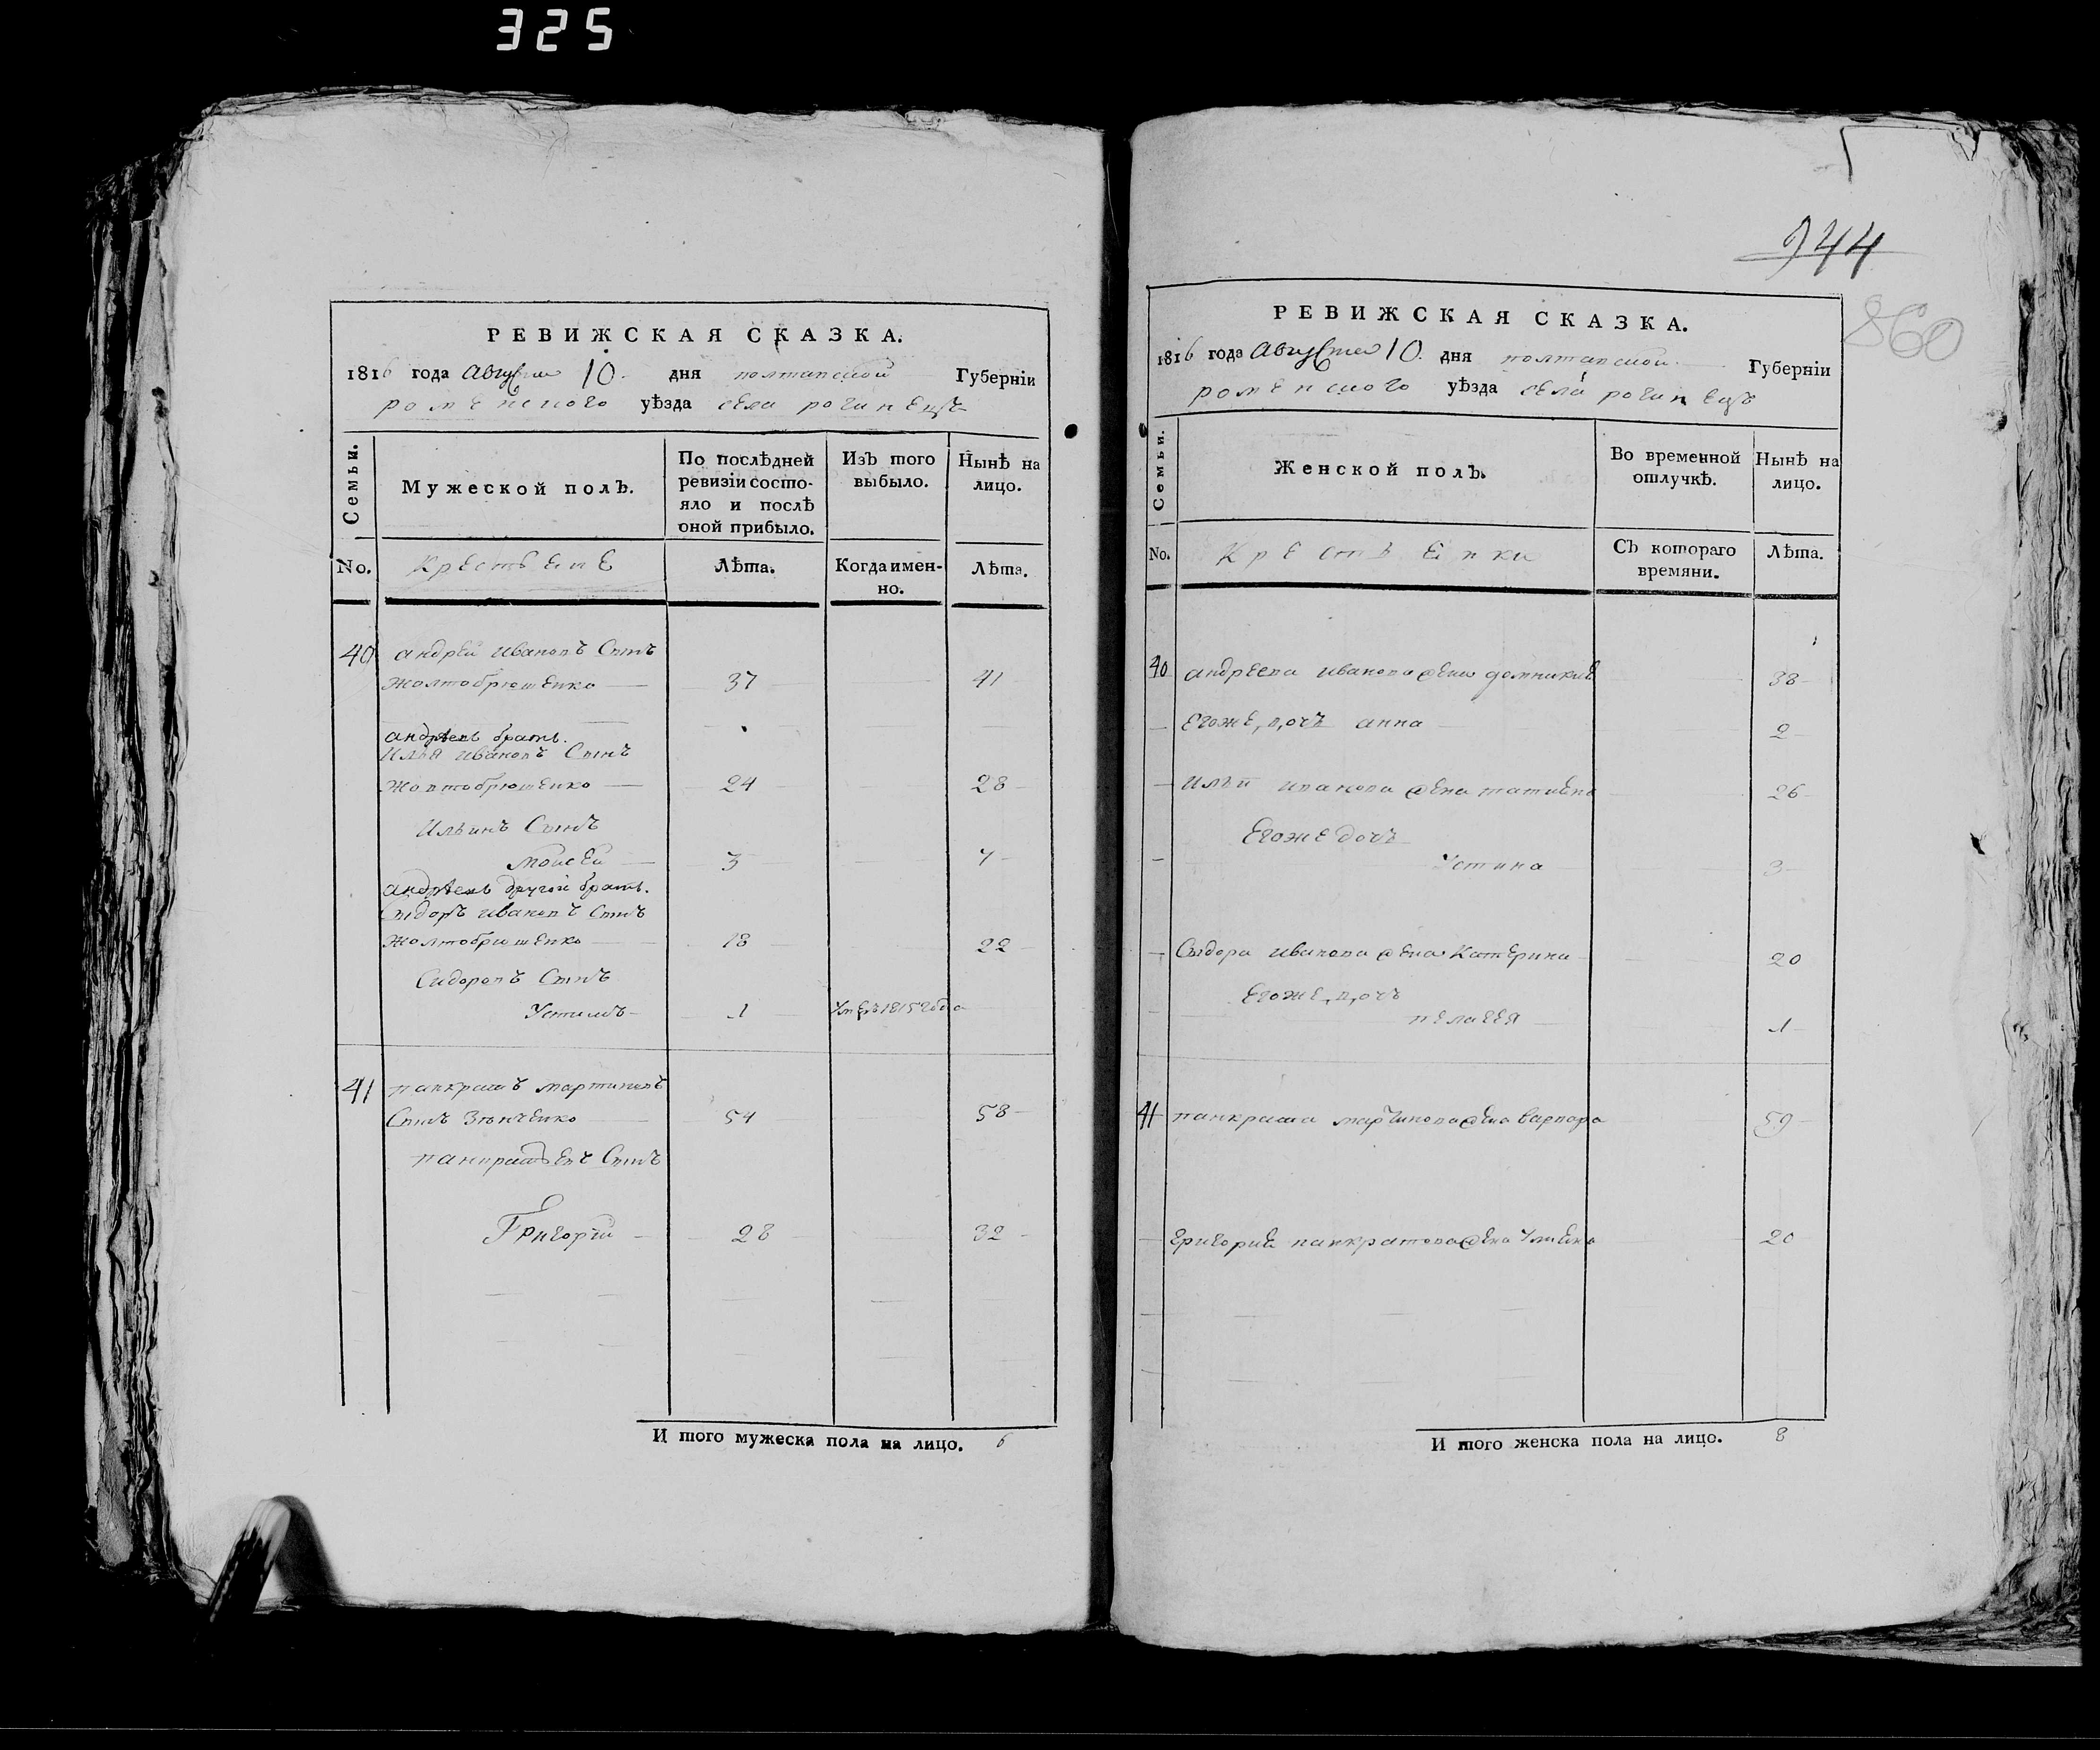 325
РЕВИЖСКАЯ СКАЗКА.
1816 года Августа 10. дня полтавской Губерніи
роменского уѣзда села рогинецъ
Семьи.
Мужеской полъ.
По послѣдней ревизіи состояло и послѣ оной прибыло.
Изъ того выбыло.
Нынѣ на лицо.
No.
Крестьяне
Лѣта.
Когда именно.
Лѣта.
40 андрей ивановъ Сынъ
жолтобрюшенко 37 41
андреевъ братъ.
Илья ивановъ Сынъ
жолтобрюшенко 24 28
Ильинъ Сынъ
моисей 3 7
андреевъ другой братъ.
Сыдоръ ивановъ Сынъ
жолтобрюшенко 18 22
Сидоровъ Сынъ
Устимъ 1 умеръ 1815 года
41 панкратъ мартиновъ
Сынъ Зѣнченко 54 58
панкратьевъ Сынъ
Григорій 28 32
И того мужеска пола на лицо. 6
944
860
РЕВИЖСКАЯ СКАЗКА.
1816 года Августа 10. дня полтавской Губерніи
роменского уѣзда села рогинецъ
Семьи.
Женской полъ.
Во временной отлучкѣ.
Нынѣ на лицо.
No.
Крестьенки
Съ котораго времяни.
Лѣта.
40 андреева иванова жена домникия 38
Егоже, дочь анна 2
Ильи иванова жена татиена 26
Егоже дочь
Устина 3
Сыдора иванова жена Катерина 20
Егоже, дочь
пелагея 1
41 панкрата мартинова жена варвара 59
григорие панкратова жена Улиена 20
И того женска пола на лицо. 8